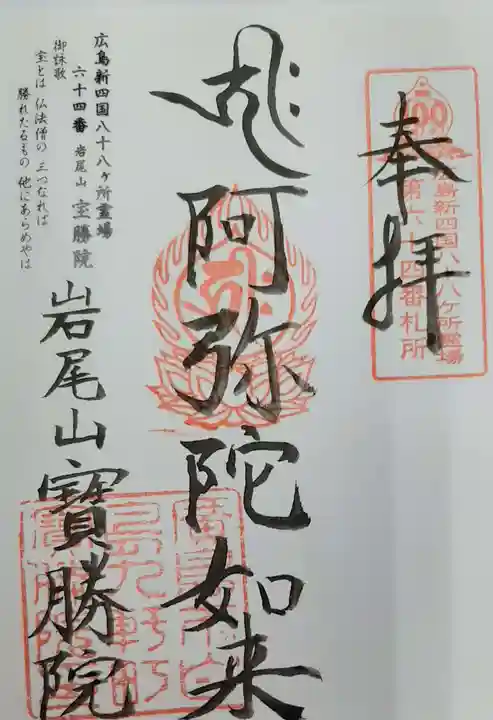 奉拝
広島新四国八十八ヶ所霊場
第六十四番札所
阿弥陀如来
広島新四国八十八ヶ所霊場
六十四番 岩尾山 宝勝院
御詠歌
宝とは 仏法僧の 三つなれば
勝れたるもの 他にあらめやは
岩尾山寶勝院